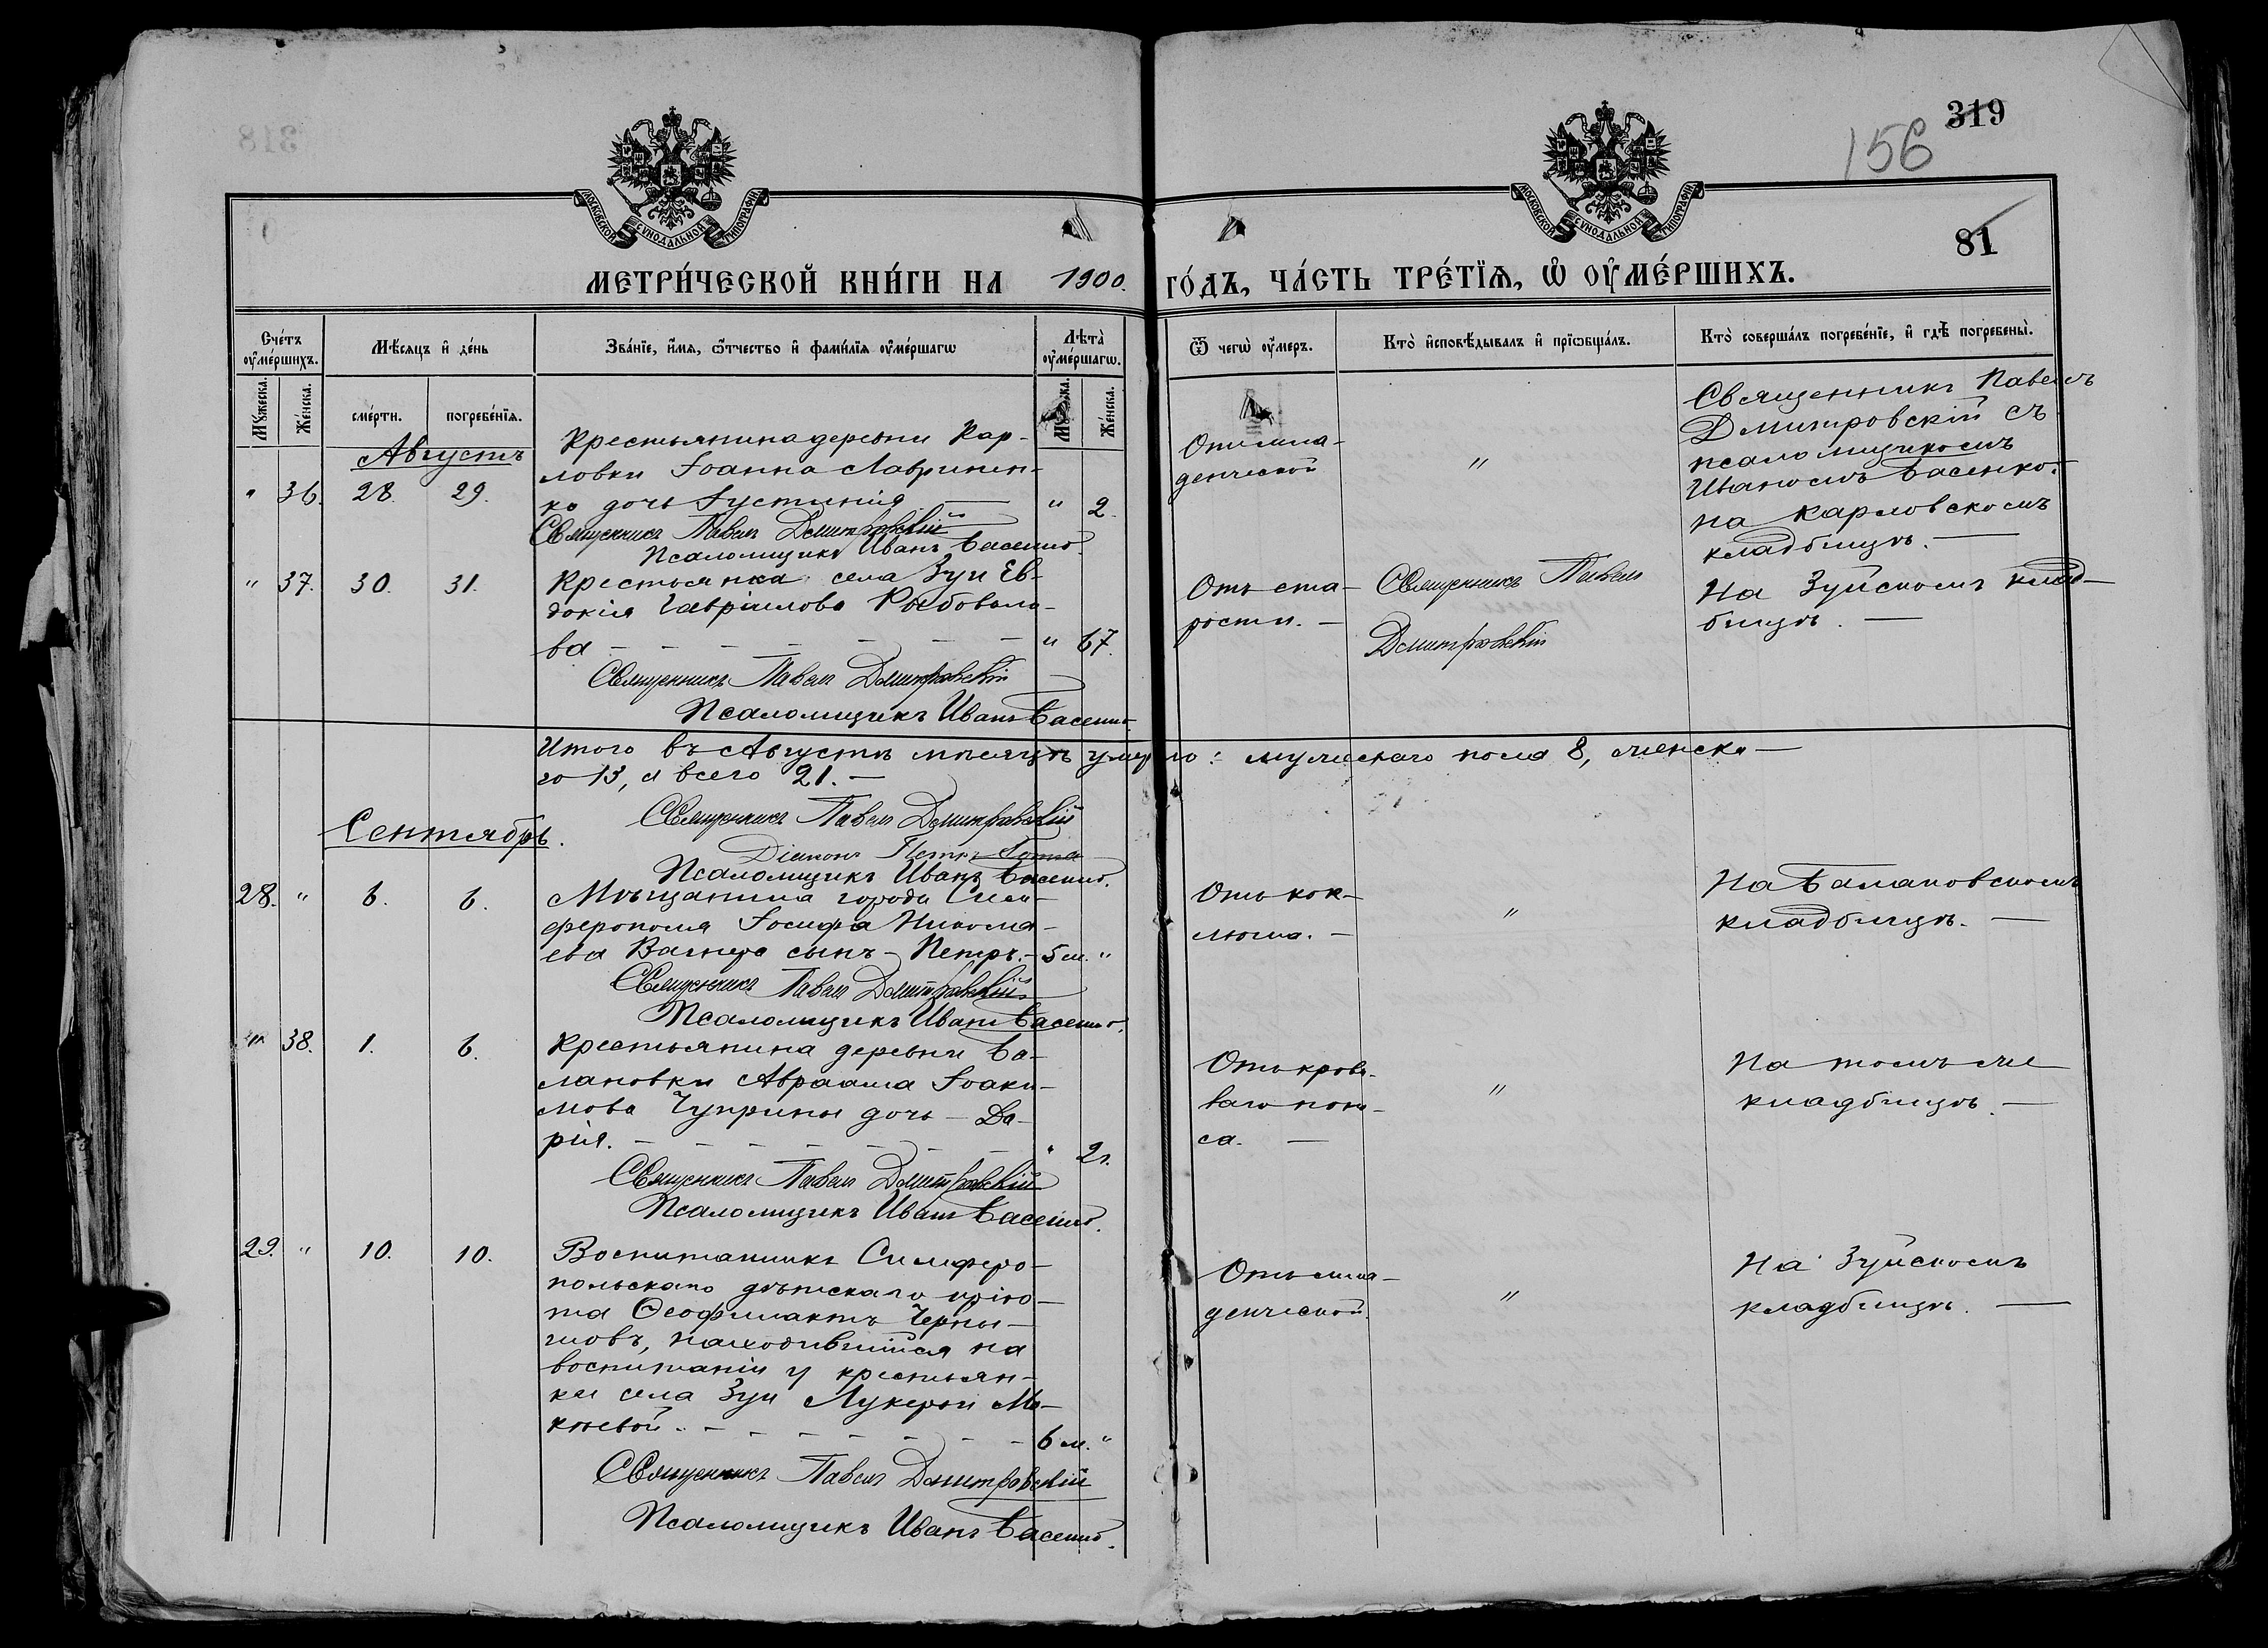 319
156
81
МОСКОВСКОЙ СѴНОДАЛЬНОЙ ТИПОГРАФІИ
МОСКОВСКОЙ СѴНОДАЛЬНОЙ ТИПОГРАФІИ
МЕТРИ́ЧЕСКОЙ КНИ́ГИ НА 1900. ГО́ДЪ, ЧА́СТЬ ТРЕ́ТЇѦ, Ѡ҆ ОУ҆МЕ́РШИХЪ.
Сче́тъ оу҆ме́ршихъ.
Мꙋ́жеска.
Же́нска.
Мѣ́сяцъ и҆ де́нь
сме́рти.
погребе́нїя.
Зва́нїе, и҆́мя, ѻ҆́тчество и҆ фами́лїя оу҆ме́ршагѡ
Лѣта̀ оу҆ме́ршагѡ.
Же́нска.
Ѿ чегѡ̀ оу҆́меръ.
Кто̀ и҆сповѣ́дывалъ и҆ прїѡбща́лъ.
Кто̀ соверша́лъ погребе́нїе, и҆ гдѣ̀ погребены̀.
Августъ
" 36. 28. 29.
Крестьянина деревни Кар-
ловки Іоанна Лавринен-
ко дочь Іустинія — " 2.
Священникъ Павелъ Дмитровскій
Псаломщикъ Иванъ Басенко.
Отъ мла-
денческой
"
Священникъ Павелъ
Дмитровскій съ
псаломщикомъ
Иваномъ Басенко.
на Карловскомъ
кладбищѣ. —
" 37. 30. 31.
Крестьянка села Зуи Ев-
докія Гавріилова Косбовало-
ва — " 67.
Священникъ Павелъ Дмитровскій
Псаломщикъ Иванъ Басенко
Отъ ста-
рости. —
Священникъ Павелъ
Дмитровскій
На Зуйскомъ клад-
бищѣ. —
Итого въ Августѣ мѣсяцѣ умерло: мужескаго пола 8, женска-
го 13, а всего 21. —
Священникъ Павелъ Дмитровскій
Діаконъ Петръ
Псаломщикъ Иванъ Басенко.
Сентябрь.
28. " 6. 6.
Мѣщанина города Сим-
ферополя Іосифа Никола-
ева Вагнера сынъ — Петръ. — 5 м. "
Священникъ Павелъ Дмитровскій
Псаломщикъ Иванъ Басенко.
Отъ кок-
люша. —
"
На Балановскомъ
кладбищѣ. —
" 38. 1. 6.
Крестьянина деревни Ба-
лановки Авраама Іоаки-
мова Чуприны дочь — Да-
рія. — " 2 г.
Священникъ Павелъ Дмитровскій
Псаломщикъ Иванъ Басенко.
Отъ крова-
ваго поно-
са. —
"
На томъ же
кладбищѣ. —
29. " 10. 10.
Воспитанникъ Симферо-
польскаго дѣтскаго прію-
та Ѳеофилактъ Черны-
шовъ, находившійся на
воспитаніи у крестьян-
ки села Зуи Лукеріи Мо-
кіевой. — 6 м. "
Священникъ Павелъ Дмитровскій
Псаломщикъ Иванъ Басенко.
Отъ мла-
денческой.
"
На Зуйскомъ
кладбищѣ. —